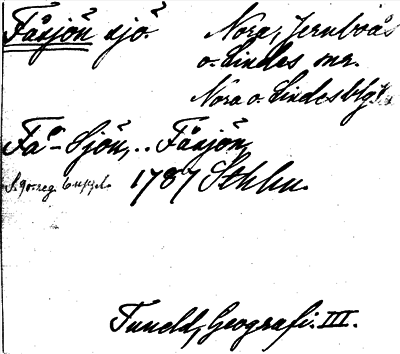 Fåsjön sjö.
Nora, Jernboås
o. Lindes snr.
Nora o. Lindesblg.
Få-Sjön, .. Fåsjön,
1787 Sthlm.
Tuneld, Geografi. III.